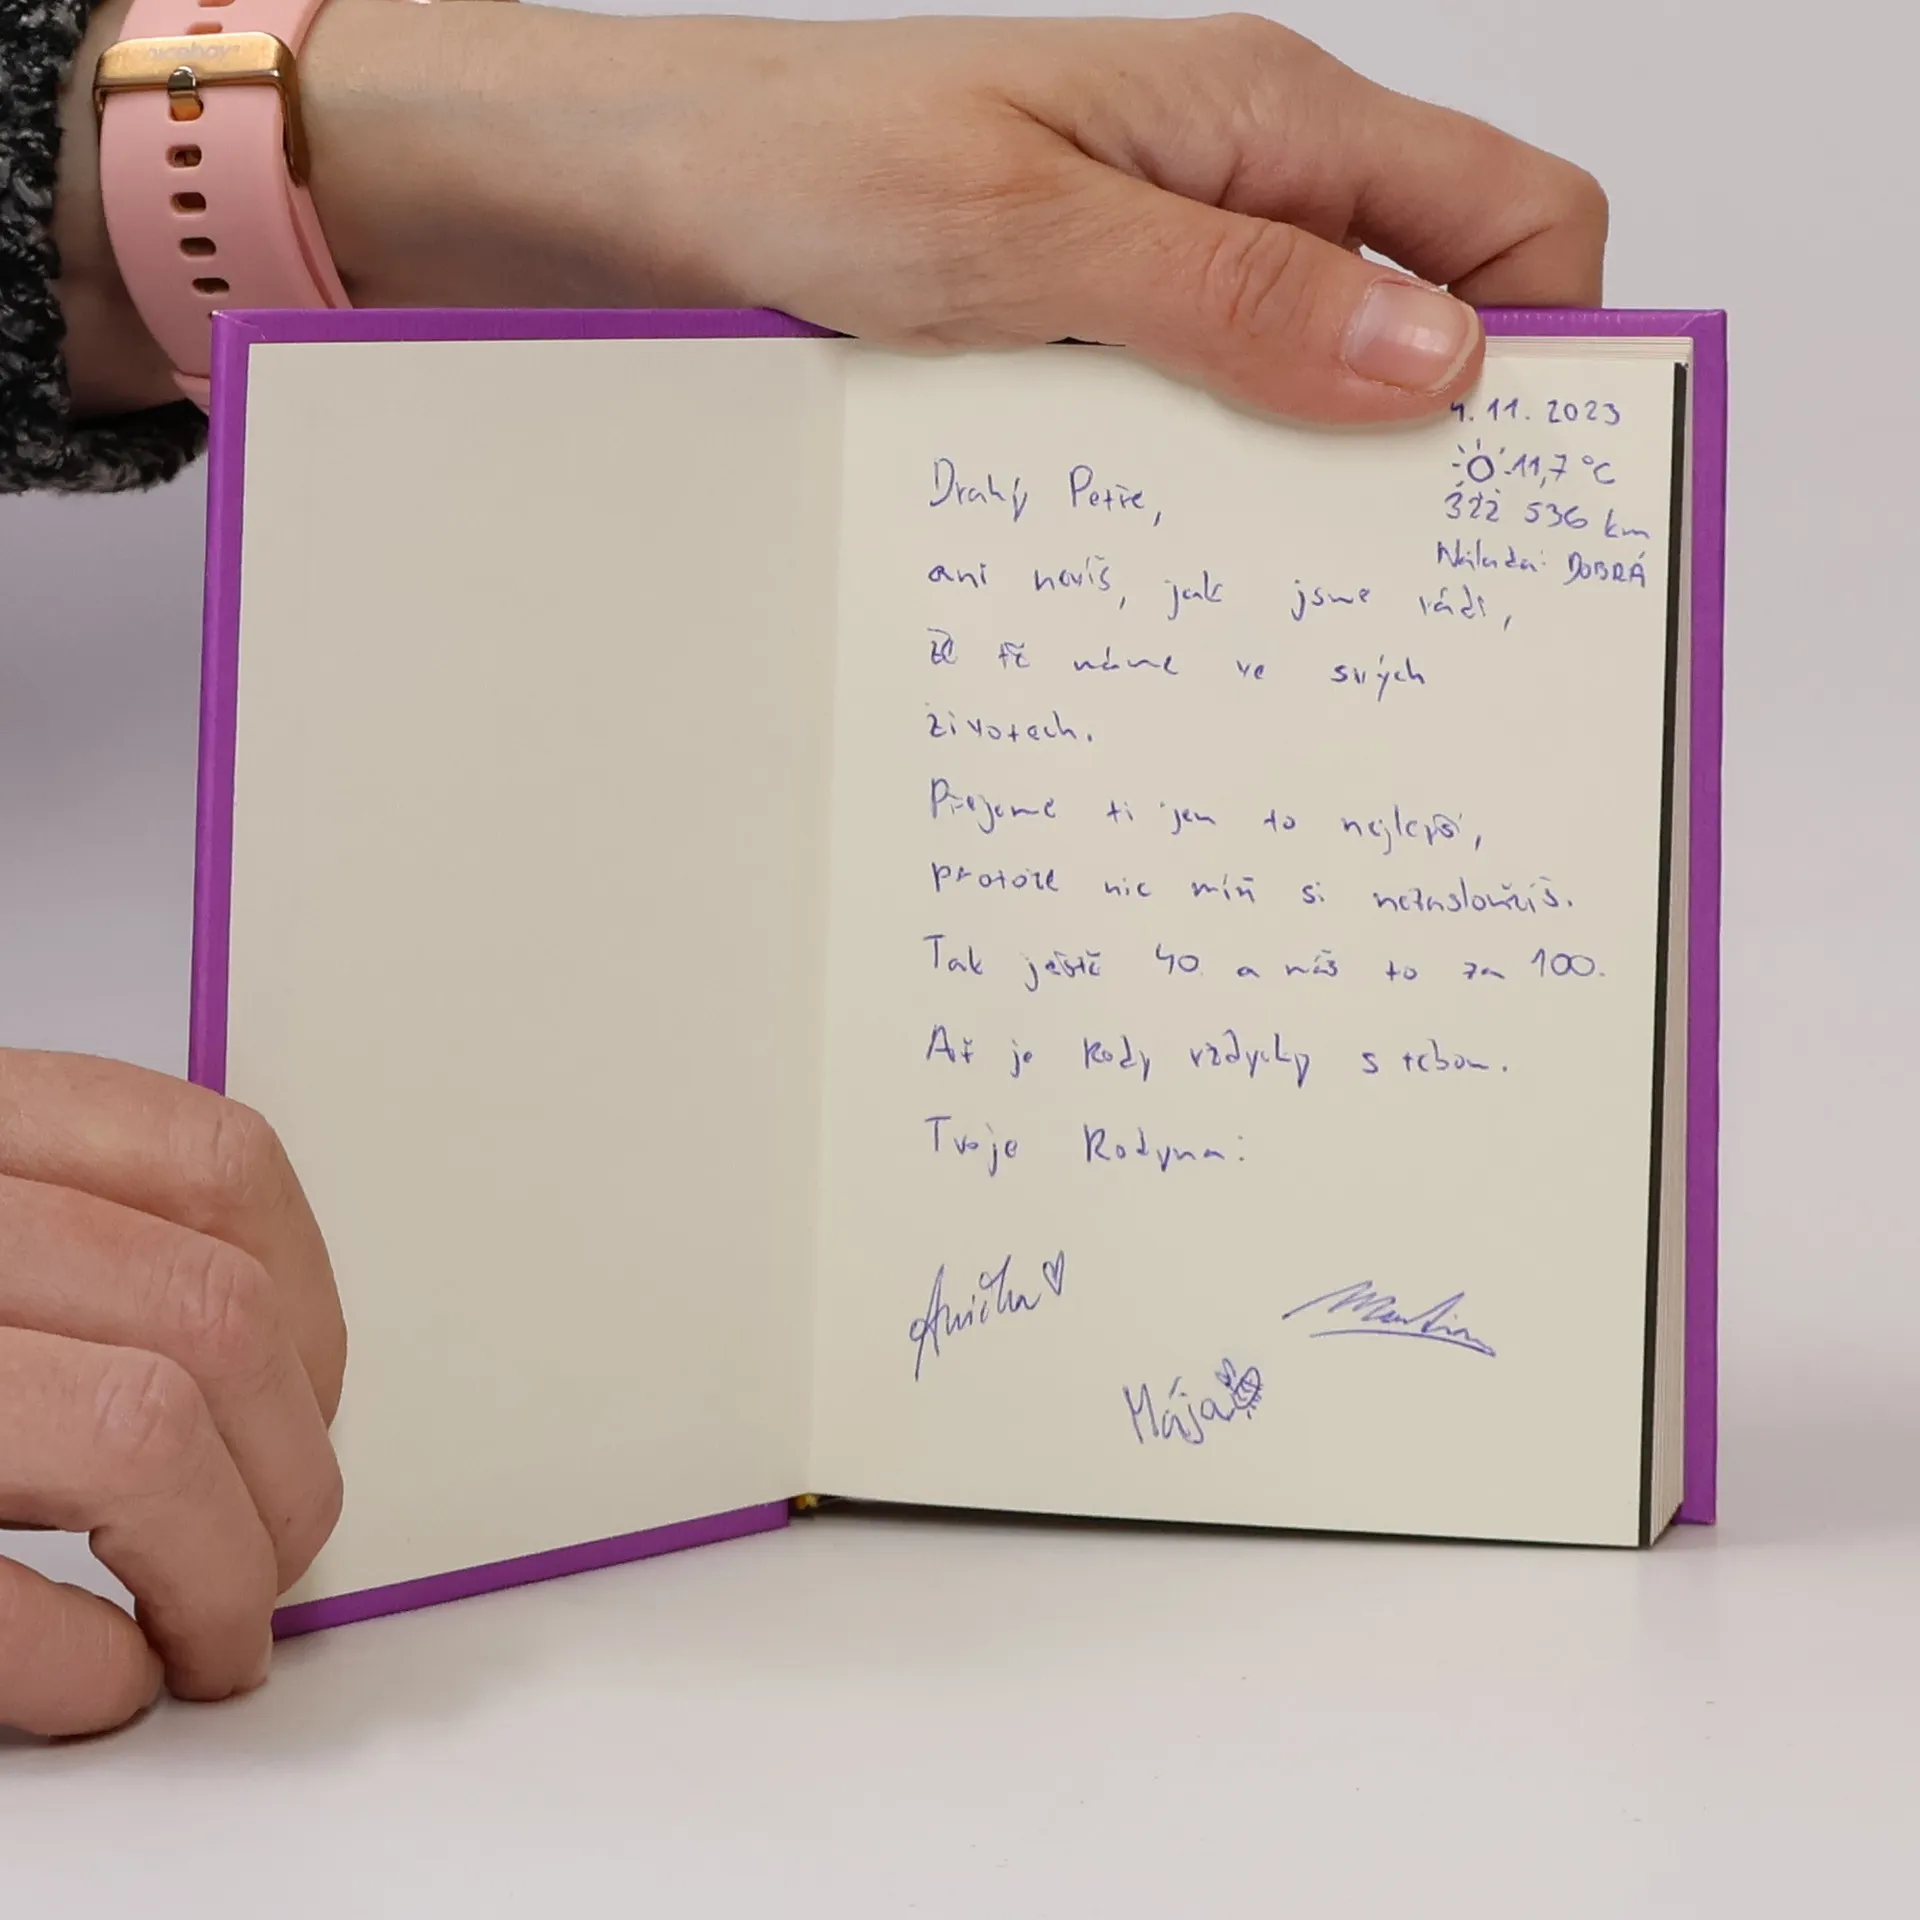 niceboy
4. 11. 2023
11,7 °C
322 536 km
Nálada: DOBRÁ
Drahý Petře,
ani nevíš, jak jsme rádi,
že tě máme ve svých
životech.
Přejeme ti jen to nejlepší,
protože nic míň si nezasloužíš.
Tak ještě 40 a máš to za 100.
Ať je Rody vždycky s tebou.
Tvoje Rodyna:
Anička
Martin
Mája